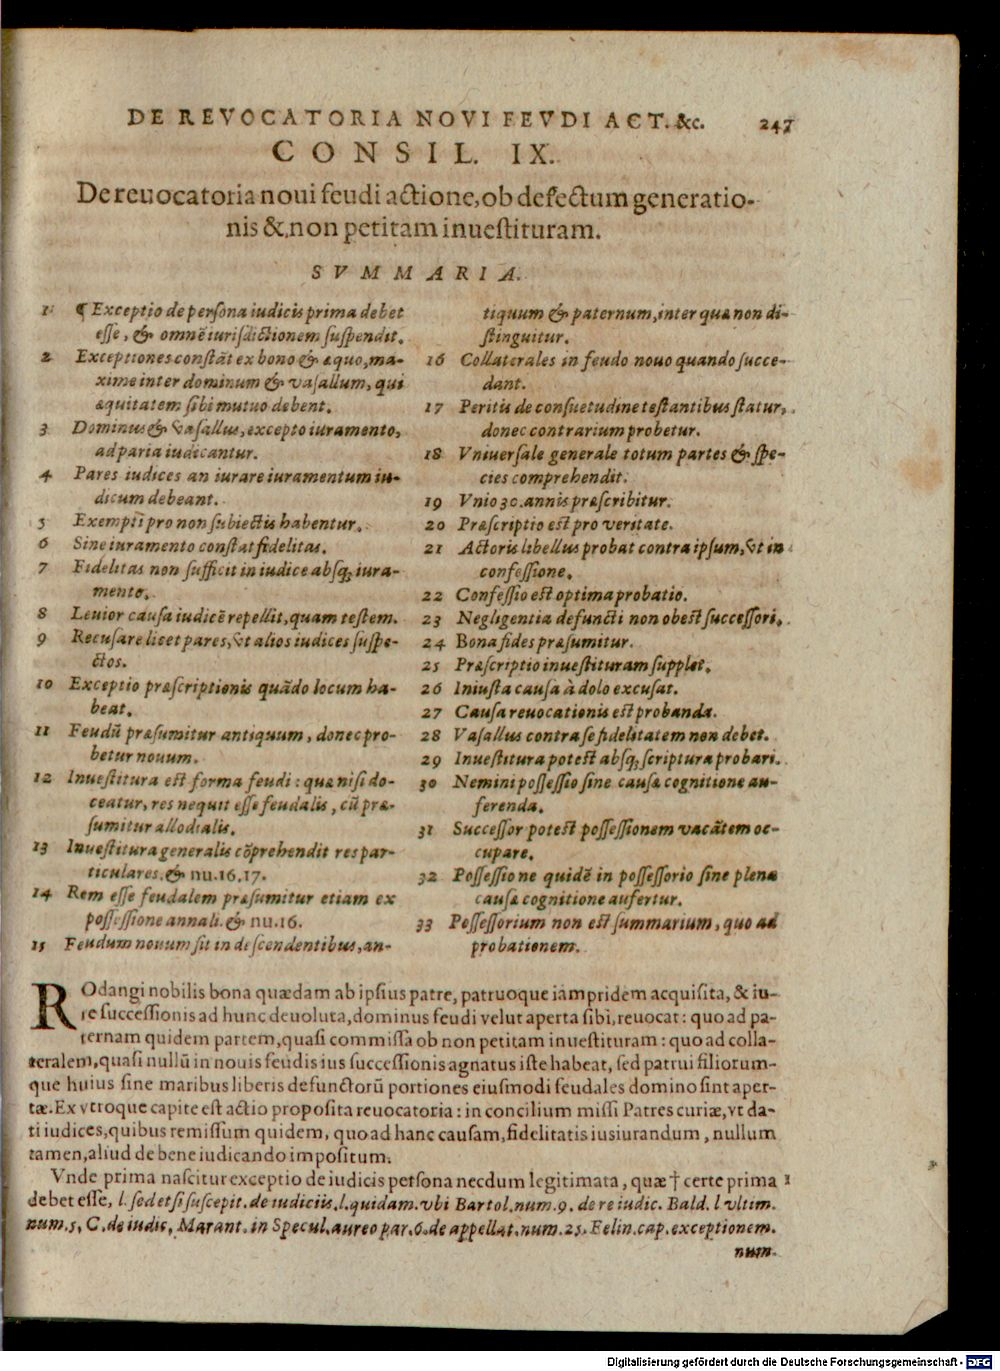 DE REVOCATORIA NOVI FEVDI ACT. &c. 247
CONSIL. IX.
De reuocatoria noui feudi actione, ob defectum generatio-
nis &, non petitam inuestituram.
SVMMARIA.
1 ¶ Exceptio de persona iudicis prima debet
esse, & omnē iurisdictionem suspendit.
2 Exceptiones constāt ex bono & æquo, ma-
xime inter dominum & vasallum, qui
æquitatem sibi mutuo debent.
3 Dominus & vasallus, excepto iuramento,
ad paria iudicantur.
4 Pares iudices an iurare iuramentum iu-
dicum debeant.
5 Exempti pro non subiectis habentur.
6 Sine iuramento constat fidelitas.
7 Fidelitas non sufficit in iudice absq; iura-
mento.
8 Leuior causa iudicē repellit, quam testem.
9 Recusare licet pares, vt alios iudices suspe-
ctos.
10 Exceptio præscriptionis quādo locum ha-
beat.
11 Feudū præsumitur antiquum, donec pro-
betur nouum.
12 Inuestitura est forma feudi: quæ nisi do-
ceatur, res nequit esse feudalis, cū præ-
sumitur allodialis.
13 Inuestitura generalis cōprehendit res par-
ticulares. & nu. 16. 17.
14 Rem esse feudalem præsumitur etiam ex
possessione annali. & nu. 16.
15 Feudum nouum fit in descendentibus, an-
tiquum & paternum, inter quæ non di-
stinguitur.
16 Collaterales in feudo nouo quando succe-
dant.
17 Peritis de consuetudine testantibus statur,
donec contrarium probetur.
18 Vniuersale generale totum partes & spe-
cies comprehendit.
19 Vnio 30. annis præscribitur.
20 Præscriptio est pro veritate.
21 Actoris libellus probat contra ipsum, vt in
confessione.
22 Confessio est optima probatio.
23 Negligentia defuncti non obest successori.
24 Bona fides præsumitur.
25 Præscriptio inuestituram supplet.
26 Iniusta causa à dolo excusat.
27 Causa reuocationis est probanda.
28 Vasallus contra se fidelitatem non debet.
29 Inuestitura potest absq; scriptura probari.
30 Nemini possessio sine causæ cognitione au-
ferenda.
31 Successor potest possessionem vacātem oc-
cupare.
32 Possessione quidē in possessorio sine plena
causæ cognitione aufertur.
33 Possessorium non est summarium, quo ad
probationem.
ROdangi nobilis bona quædam ab ipsius patre, patruoque iampridem acquisita, & iu-
re successionis ad hunc deuoluta, dominus feudi velut aperta sibi, reuocat: quo ad pa-
ternam quidem partem, quasi commissa ob non petitam inuestituram: quo ad colla-
teralem, quasi nullū in nouis feudis ius successionis agnatus iste habeat, sed patrui filiorum-
que huius sine maribus liberis defunctorū portiones eiusmodi feudales domino sint aper-
tæ. Ex vtroque capite est actio proposita reuocatoria: in concilium missi Patres curiæ, vt da-
ti iudices, quibus remissum quidem, quo ad hanc causam, fidelitatis iusiurandum, nullum
tamen, aliud de bene iudicando impositum.
Vnde prima nascitur exceptio de iudicis persona necdum legitimata, quæ † certe prima 1
debet esse, l. sed et si suscepit. de iudiciis. l. quidam. vbi Bartol. num. 9. de re iudic. Bald. l vltim.
num. 5. C. de iudic. Marant. in Specul. aureo par. 6. de appellat. num. 25. Felin. cap. exceptionem.
num.
Digitalisierung gefördert durch die Deutsche Forschungsgemeinschaft - DFG